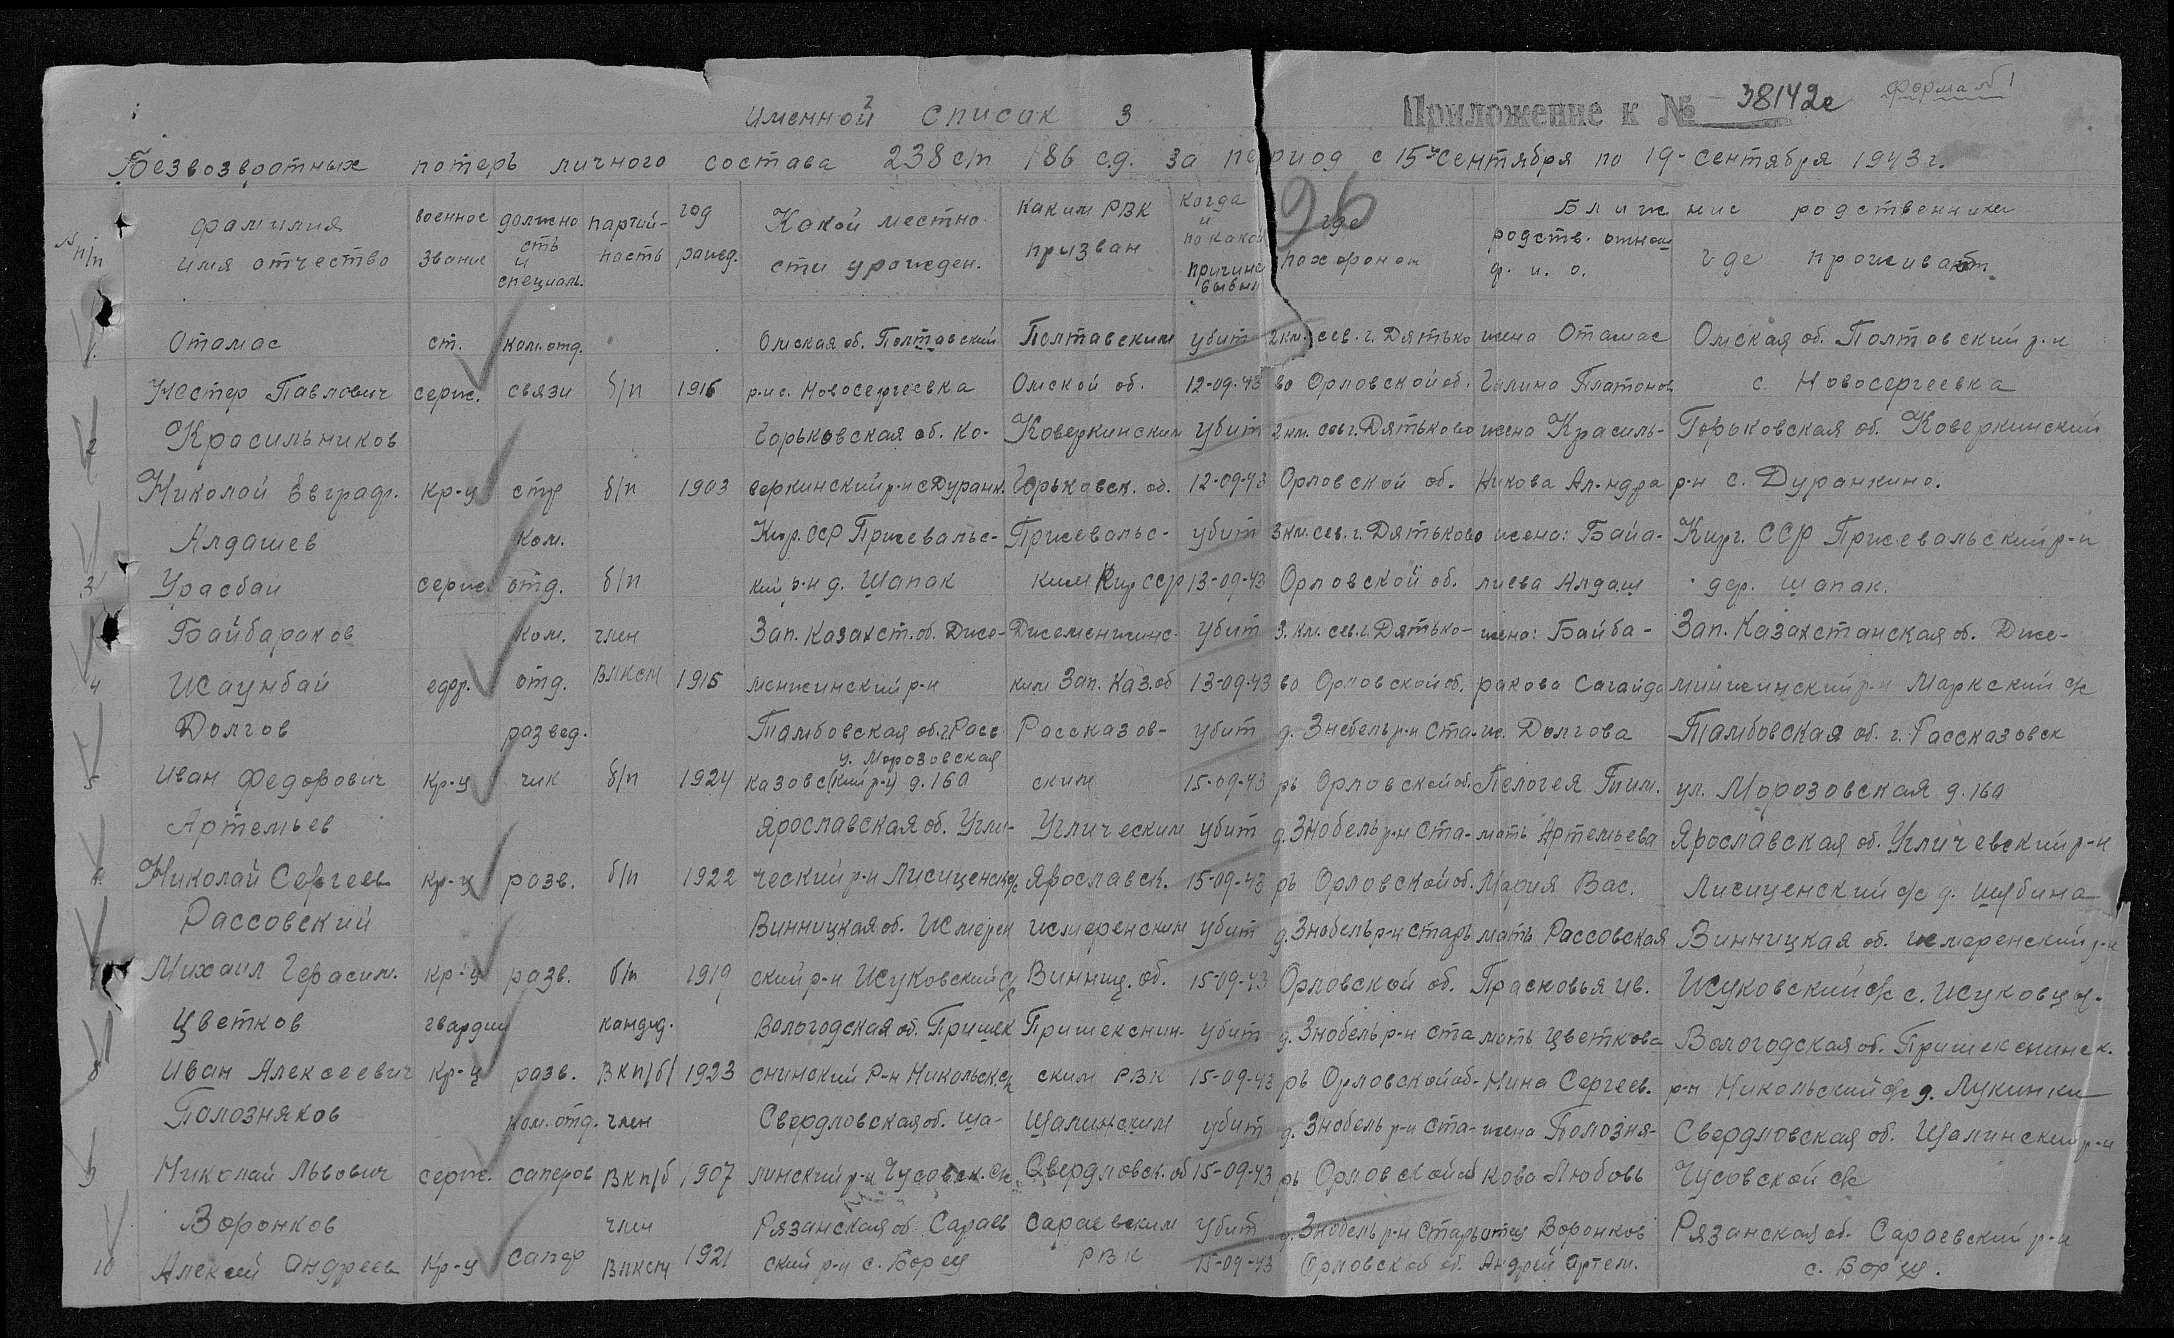 Форма №1
Именной список 3
Приложение к № 38142с
Безвозвратных потерь личного состава 238 сп 186 с.д. за период с 15 сентября по 19 сентября 1943 г.
96
№ п/п фамилия имя отчество военное звание должность и специаль. партий-ность год рожд. Какой местно-сти урожден. каким РВК призван когда и по какой причине выбыл где похоронен Ближние родственники
родств. отнош ф. и. о. где проживают
Отамас ст. ком. отд. Омская об. Полтавский Полтавским убит 2 км. сев. г. Дятько жена Отамас Омская об. Полтавский р-н
1 Нестер Павлович серж. связи б/п 1916 р-н с. Новосергеевка Омской об. 12-09-43 во Орловской об. Галина Платонов с. Новосергеевка
Красильников Горьковская об. Ко- Коверкинским убит 2 км. сев г. Дятьково жена Красиль- Горьковская об. Коверкинский
2 Николай Евграф. кр-ц стр б/п 1903 веркинский р-н с Дуранк. Горьковск. об. 12-09-43 Орловской об. никова Ал-ндра р-н с. Дуранкино.
Алдашев ком. Кир. ССР Пржевальс- Пржевальс- убит 3 км. сев. г. Дятьково жена: Байа- Кирг. ССР Пржевальский р-н
3 Урасбаи серж. отд. б/п кий р-н д. Шапак ким Кир ССР 13-09-43 Орловской об. лиева Алдаш дер. Шапак.
Байбараков ком. член Зап. Казахст. об. Дже- Джеменжинс- убит 3. км. сев. г. Дятько- жена: Байба- Зап. Казахстанская об. Дже-
4 Жаунбай ефр. отд. ВЛКСМ 1915 менжинский р-н ким Зап. Каз. об 13-09-43 во Орловской об. ракова Сагайда минжинский р-н Маркский с/с
Долгов развед. Тамбовская об. г. Расс Рассказов- убит д. Знобель р-н Ста- ж. Долгова Тамбовская об. г. Рассказовск
у. Морозовская
5 Иван Федорович кр-ц чик б/п 1924 казовс(кий р-н) д. 160 ским 15-09-43 рь Орловской об. Пелогея Тим. ул. Морозовская д. 160
Артемьев Ярославская об. Угли- Угличеким убит д. Знобель р-н Ста- мать Артемьева Ярославская об. Угличевский р-н
6 Николай Сергеев кр-ц разв. б/п 1922 ческий р-н Лисиценск с/с Ярославск. 15-09-43 рь Орловской об. Мария Вас. Лисиценский с/с д. Шубина
Рассовский Винницкая об. Жмерен Жмеренским убит д. Знобель р-н Старь мать Рассовская Винницкая об. Жмеренский р-н
7 Михаил Герасим. кр-ц разв. б/п 1919 ский р-н Жуковский с/с Винниц. об. 15-09-43 Орловской об. Прасковья Ив. Жуковский с/с с. Жуковц
Цветков гвардии кандид. Вологодская об. Пришек Пришекснин- убит д. Знобель р-н Ста мать Цветкова Вологодская об. Пришекснинск.
8 Иван Алексеевич кр-ц разв. ВКП/б/ 1923 снинский р-н Никольск. с/с ским РВК 15-09-43 рь Орловской об- Нина Сергеев. р-н Никольский с/с д. Лукинки
Полозняков ком. отд. член Свердловская об. Ша- Шалинским убит д. Знобель р-н Ста- жена Полозня- Свердловская об. Шалинский р-н
9 Николай Львович серж. саперов ВКП/б 1907 линский р-н Чусовск. с/с Свердловск. об 15-09-43 рь Орловской об кова Любовь Чусовской с/с
Воронков член Рязанская об. Сараев Сараевским убит д. Знобель р-н Старь отец Воронков Рязанская об. Сараевский р-н
10 Алексей Андреев кр-ц сапер ВЛКСМ 1921 ский р-н с. Борец РВК 15-09-43 Орловской об. Андрей Артем. с. Борец.